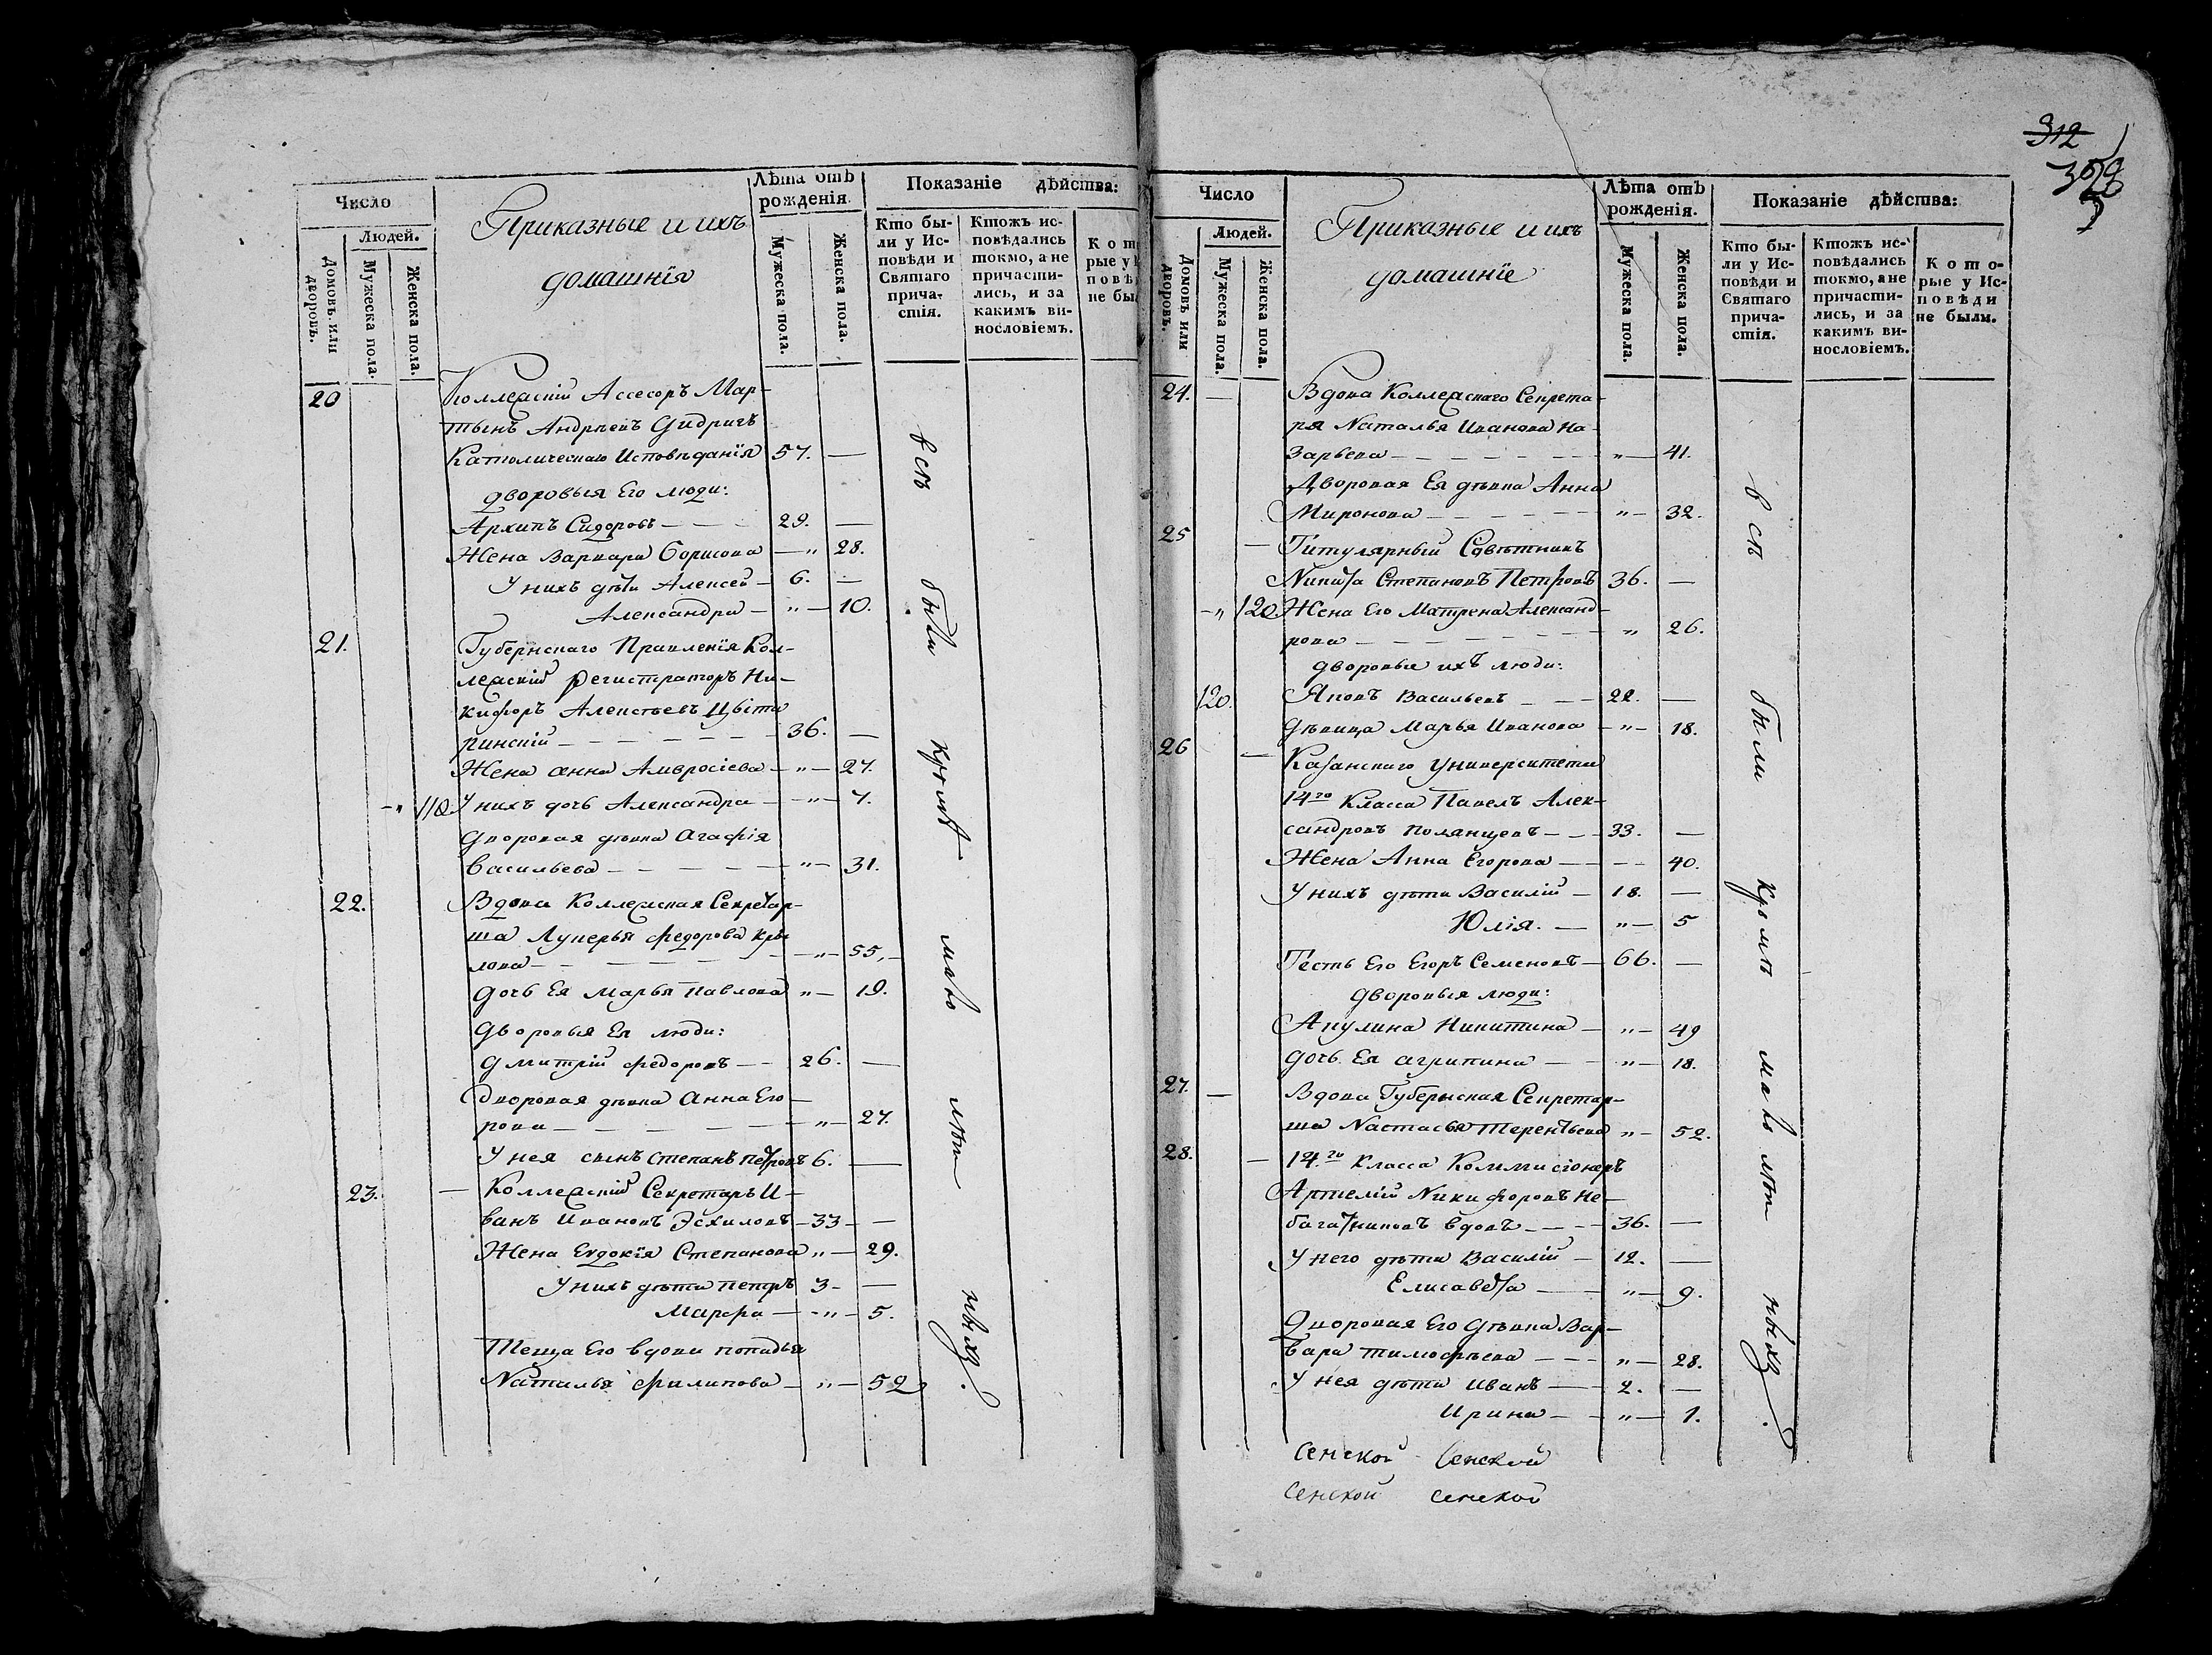 Число
Людей.
Домовъ или дворовъ.
Мужеска пола.
Женска пола.
Приказные и ихъ
домашнія
Лѣта отъ рожденія.
Мужеска пола.
Женска пола.
Показаніе дѣйства:
Кто бы-
ли у Ис-
повѣди и
Святаго
прича-
стія.
Ктожъ ис-
повѣдались
токмо, а не
причасти-
лись, и за
какимъ ви-
нословіемъ.
20 Коллежскій Ассесоръ Мар-
тынъ Андреевъ
Католическаго Исповѣданія 57. —
дворовыя Его люди:
Архипъ Сидоровъ — 29. —
Жена Варвара Борисова — " 28.
У нихъ дѣти Алексей — 6. —
Александра — " — 10.
21. Губернскаго Правленія Кол-
лежскій Регистраторъ Ни-
кифоръ Алексѣевъ
ринскій — 36. —
Жена Анна Амвросіева — " — 27.
— " 110 У нихъ дочь Александра — " — 7.
Дворовая дѣвка Агафія
Васильева — " — 31.
22. Вдова Коллежская Секретар-
ша Лукерья Федорова Кры
лова — " — 55, —
Дочь Ея Марья Павлова " — 19.
Дворовыя Ея люди:
Дмитрій Федоровъ — 26. —
Дворовая дѣвка Анна Его-
рова — " — 27.
У нея сынъ Степанъ Петровъ 6. —
23. — Коллежскій Секретарь И-
ванъ Ивановъ Эсхиловъ — 33 — —
Жена Евдокія Степанова " — 29.
У нихъ дѣти Петръ 3 — —
Марфа — " — 5.
Теща Его вдова попадья
Наталья Филипова — " — 52
всѣ были кромѣ мало лѣт ныхъ.
312
Число
Людей.
Домовъ или дворовъ.
Мужеска пола.
Женска пола.
Приказные и ихъ
домашніе
Лѣта отъ рожденія.
Мужеска пола.
Женска пола.
Показаніе дѣйства:
Кто бы-
ли у Ис-
повѣди и
Святаго
прича-
стія.
Ктожъ ис-
повѣдались
токмо, а не
причасти-
лись, и за
какимъ ви-
нословіемъ.
Кото-
рые у Ис-
повѣди
не были.
24. — Вдова Коллежскаго Секрета-
ря Наталья Иванова На-
зарьева — " — 41.
Дворовая Ея дѣвка Анна
Миронова — " — 32.
25 — Титулярный Совѣтникъ
Никита Степановъ Петровъ 36. —
— " 120 Жена Его Матрена Александ-
рова — " 26.
дворовые ихъ люди:
120. Яковъ Васильевъ — 22. —
Дѣвица Марья Иванова — " — 18.
26 — Казанскаго Университета
14го Класса Павелъ Алек-
сандровъ Полянцевъ — 33. —
Жена Анна Егорова — — 40.
У нихъ дѣти Василій — 18. —
Юлія. — " — 5
Тесть Его Егоръ Семеновъ — 66. —
Дворовыя люди:
Акулина Никитина — " — 49
Дочь Ея Агрипина — " — 18.
27. — Вдова Губернская Секретар-
ша Настасья Терентьева " — 52.
28. — 14го Класса Коммисіонеръ
Артемій Никифоровъ Не-
багатиковъ вдовъ — 36. —
У него дѣти Василій — 12. —
Елисавета — " — 9.
Дворовая Его Дѣвка Вар-
вара Тимофѣева — " — 28.
У нея дѣти Иванъ — 2. —
Ирина — " — 1.
всѣ были кромѣ мало лѣт ныхъ.
Сенской Сенской
Сенской Сенской